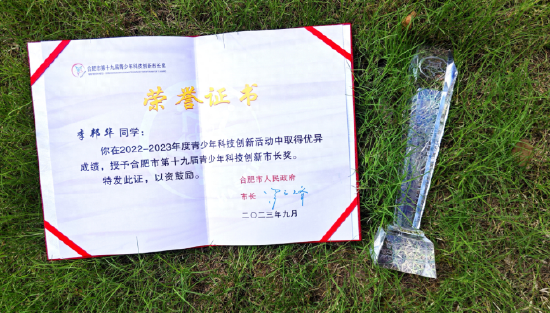 合肥市第十九届青少年科技创新市长奖
荣誉证书
李邦华 同学：
你在2022-2023年度青少年科技创新活动中取得优异
成绩，授予合肥市第十九届青少年科技创新市长奖。
特发此证，以资鼓励。
合肥市人民政府
市长
二〇二三年九月